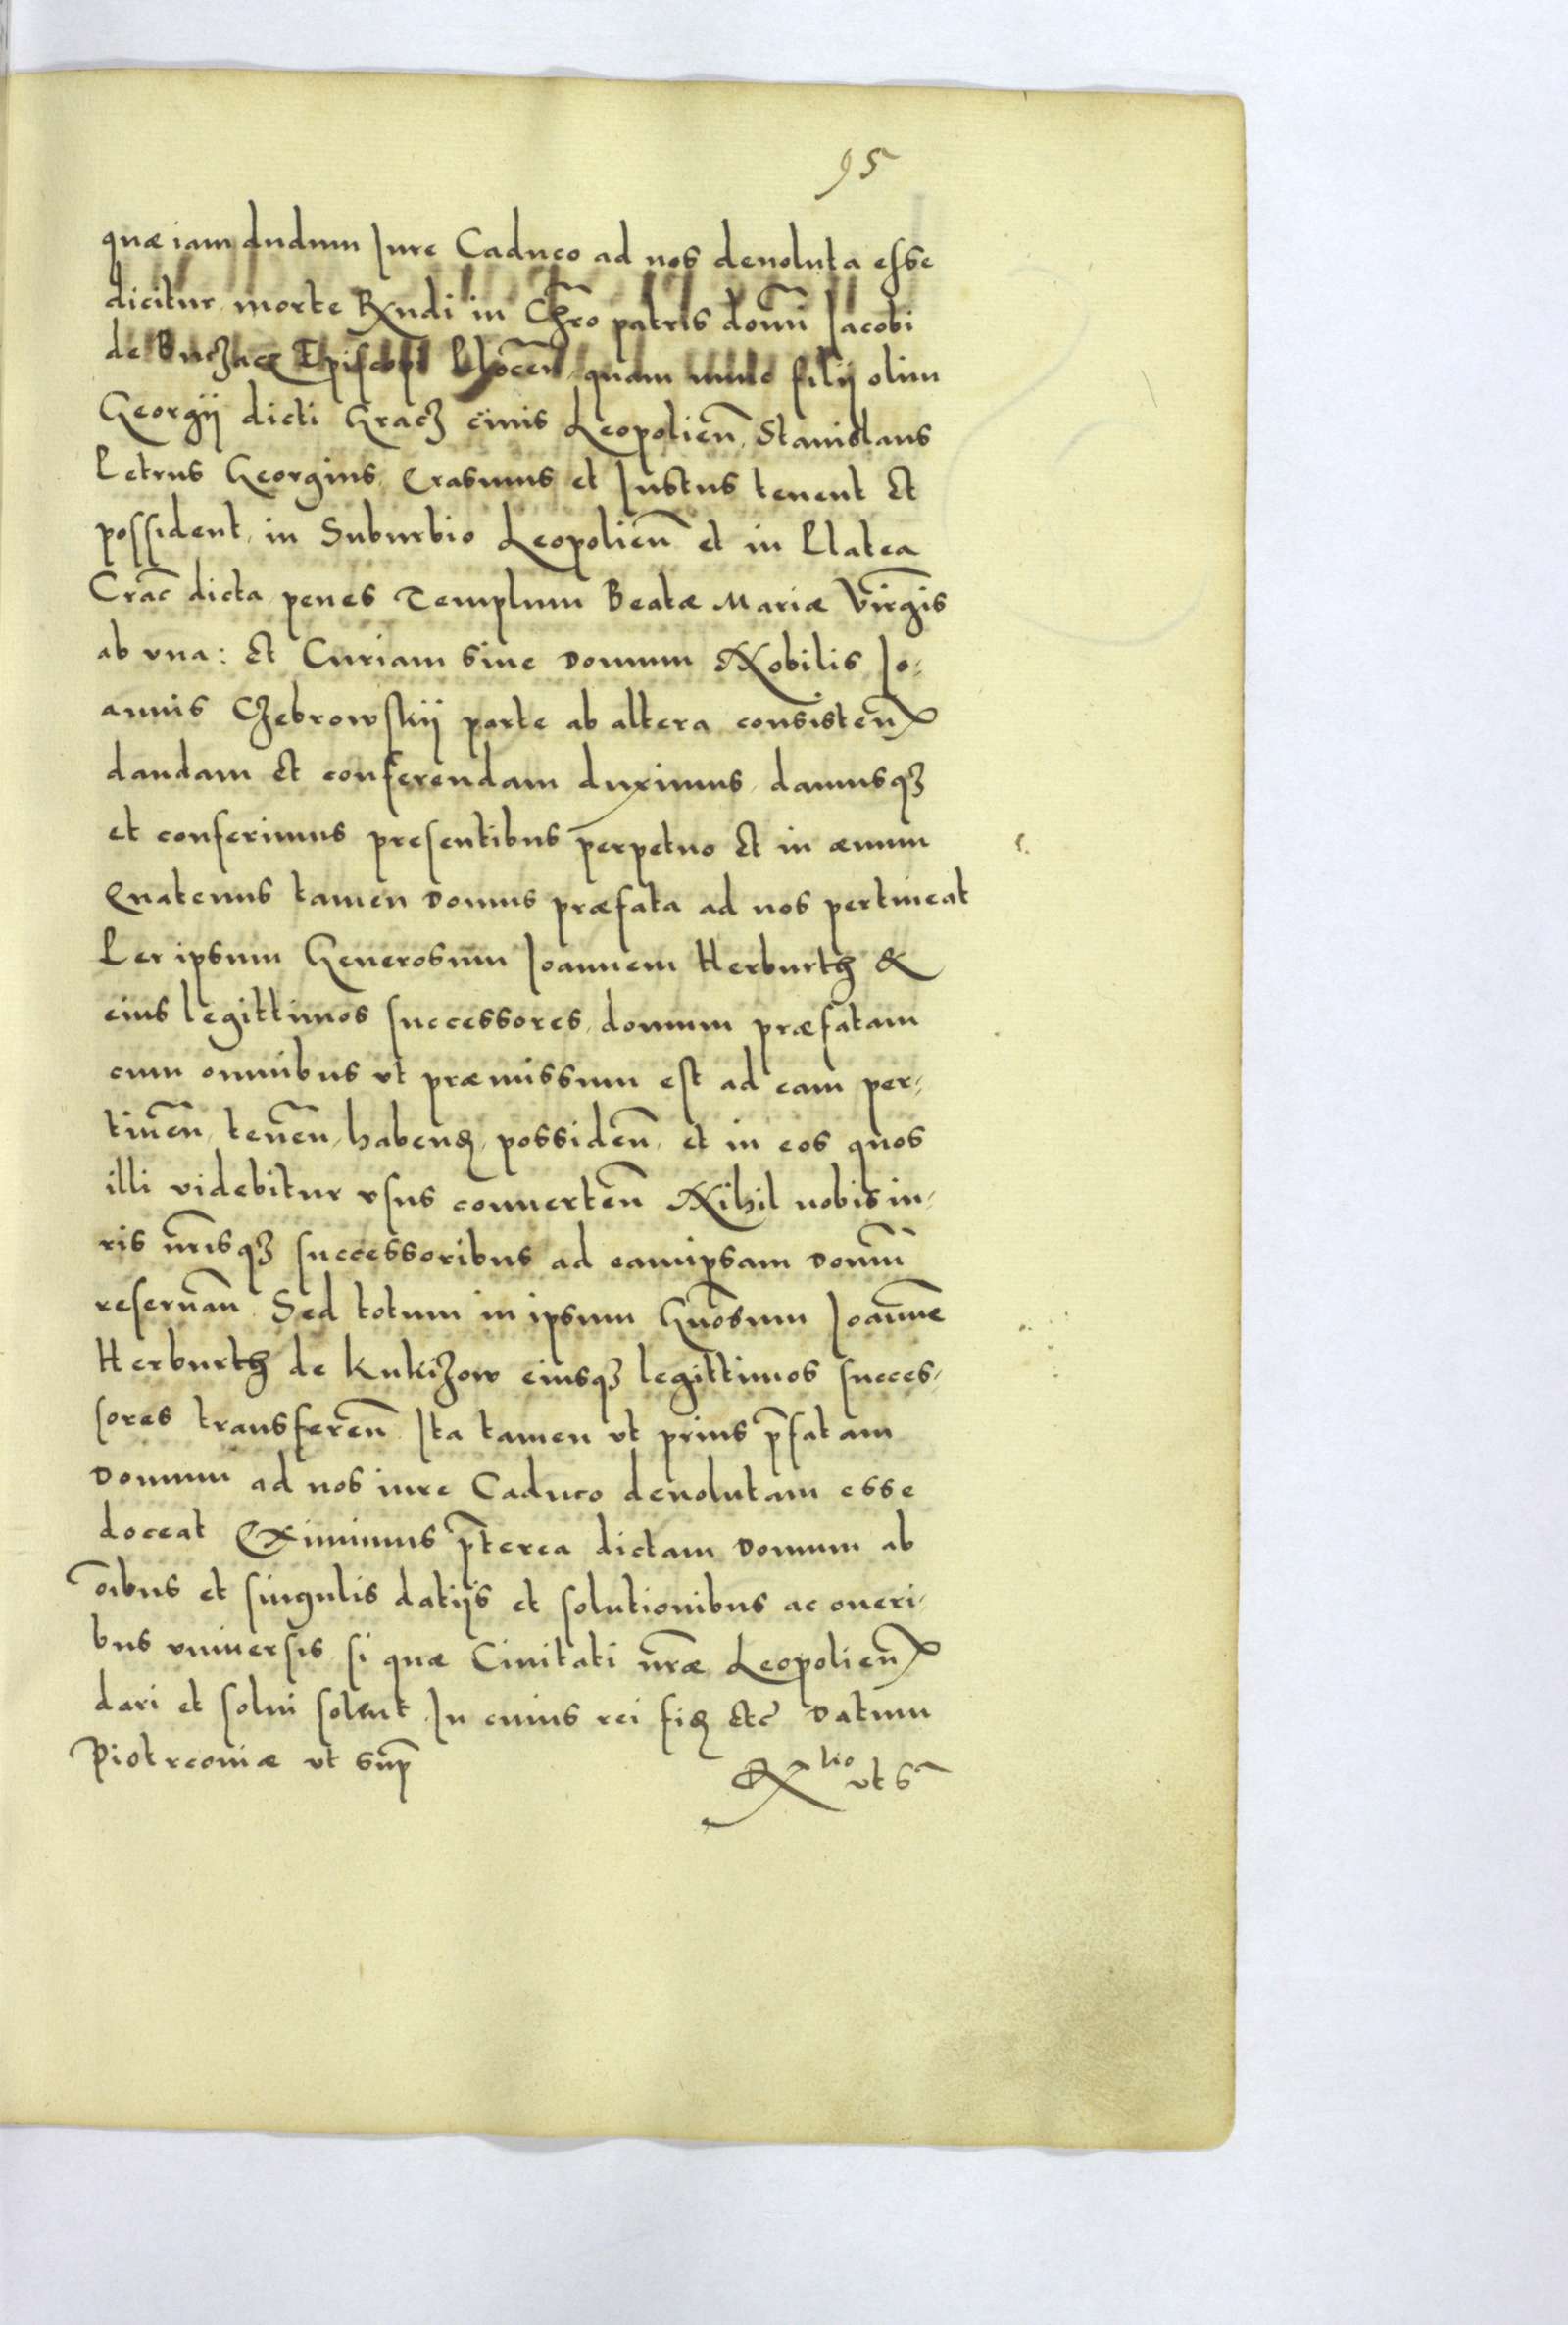 95
quæ iam dudum Iure Caduco ad nos deuoluta esse
dicitur morte Rxndi in Chro patris domi Iacobi
de Buczacz Episcopi Plocen̄ quam nunc filij olim
Georgij dicti Gracz ciuis Leopolien̄, Stanislaus
Petrus Georgius, Erasmus et Iustus tenent Et
possident, in Suburbio Leopolien̄ et in Platea
Crac̄ dicta penes Templum Beatæ Mariæ Virgis
ab vna: Et Curiam siue Domum Nobilis Io-
annis Czebrowskij parte ab altera consisten̄
dandam Et conferendam duximus, damusqȝ
et conferimus presentibus perpetuo Et in æuum
Quatenus tamen Domus præfata ad nos pertineat
Per ipsum Generosum Ioannem Herburth &
eius legittimos successores, domum præfatam
cum omnibus vt præmissum est ad eam per-
tinen̄, tenen̄, habenđ, possiden̄, et in eos quos
illi videbitur vsus conuerten̄ Nihil nobis iu-
ris nr̄isqȝ successoribus ad eamipsam Domū
reseruan̄ Sed totum in ipsum Gnosum Ioanne
Herburth de Kukizow eiusqȝ legittimos succes-
sores transferen̄ Ita tamen vt prius p̄fatam
Domum ad nos iure Caduco deuolutam esse
doceat Eximimus p̄terea dictam Domum ab
oībus et singulis datijs et solutionibus ac oneri-
bus vniuersis si quæ Ciuitati nr̄æ Leopolien̄
dari et solui solent In cuius rei fiđ Etc̄ Datum
Piotrcouiæ vt sup̄
Rx lio vt s